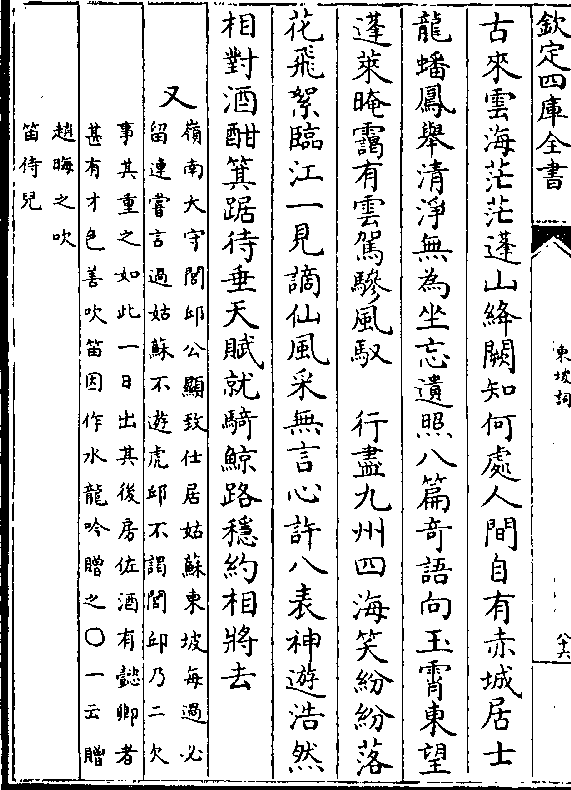 欽定四庫全書
東坡詞
八十六
古來雲海茫茫蓬山絳闕知何處人間自有赤城居士
龍蟠鳳舉清淨無為坐忘遺照八篇奇語向玉霄東望
蓬萊晻靄有雲駕驂風馭　行盡九州四海笑紛紛落
花飛絮臨江一見謫仙風采無言心許八表神遊浩然
相對酒酣箕踞待垂天賦就騎鯨路穩約相將去
又
嶺南大守閭邱公顯致仕居姑蘇東坡每過必
留連嘗言過姑蘇不遊虎邱不謁閭邱乃二欠
事其重之如此一日出其後房佐酒有懿卿者
甚有才色善吹笛因作水龍吟贈之〇一云贈
趙晦之吹
笛侍兒